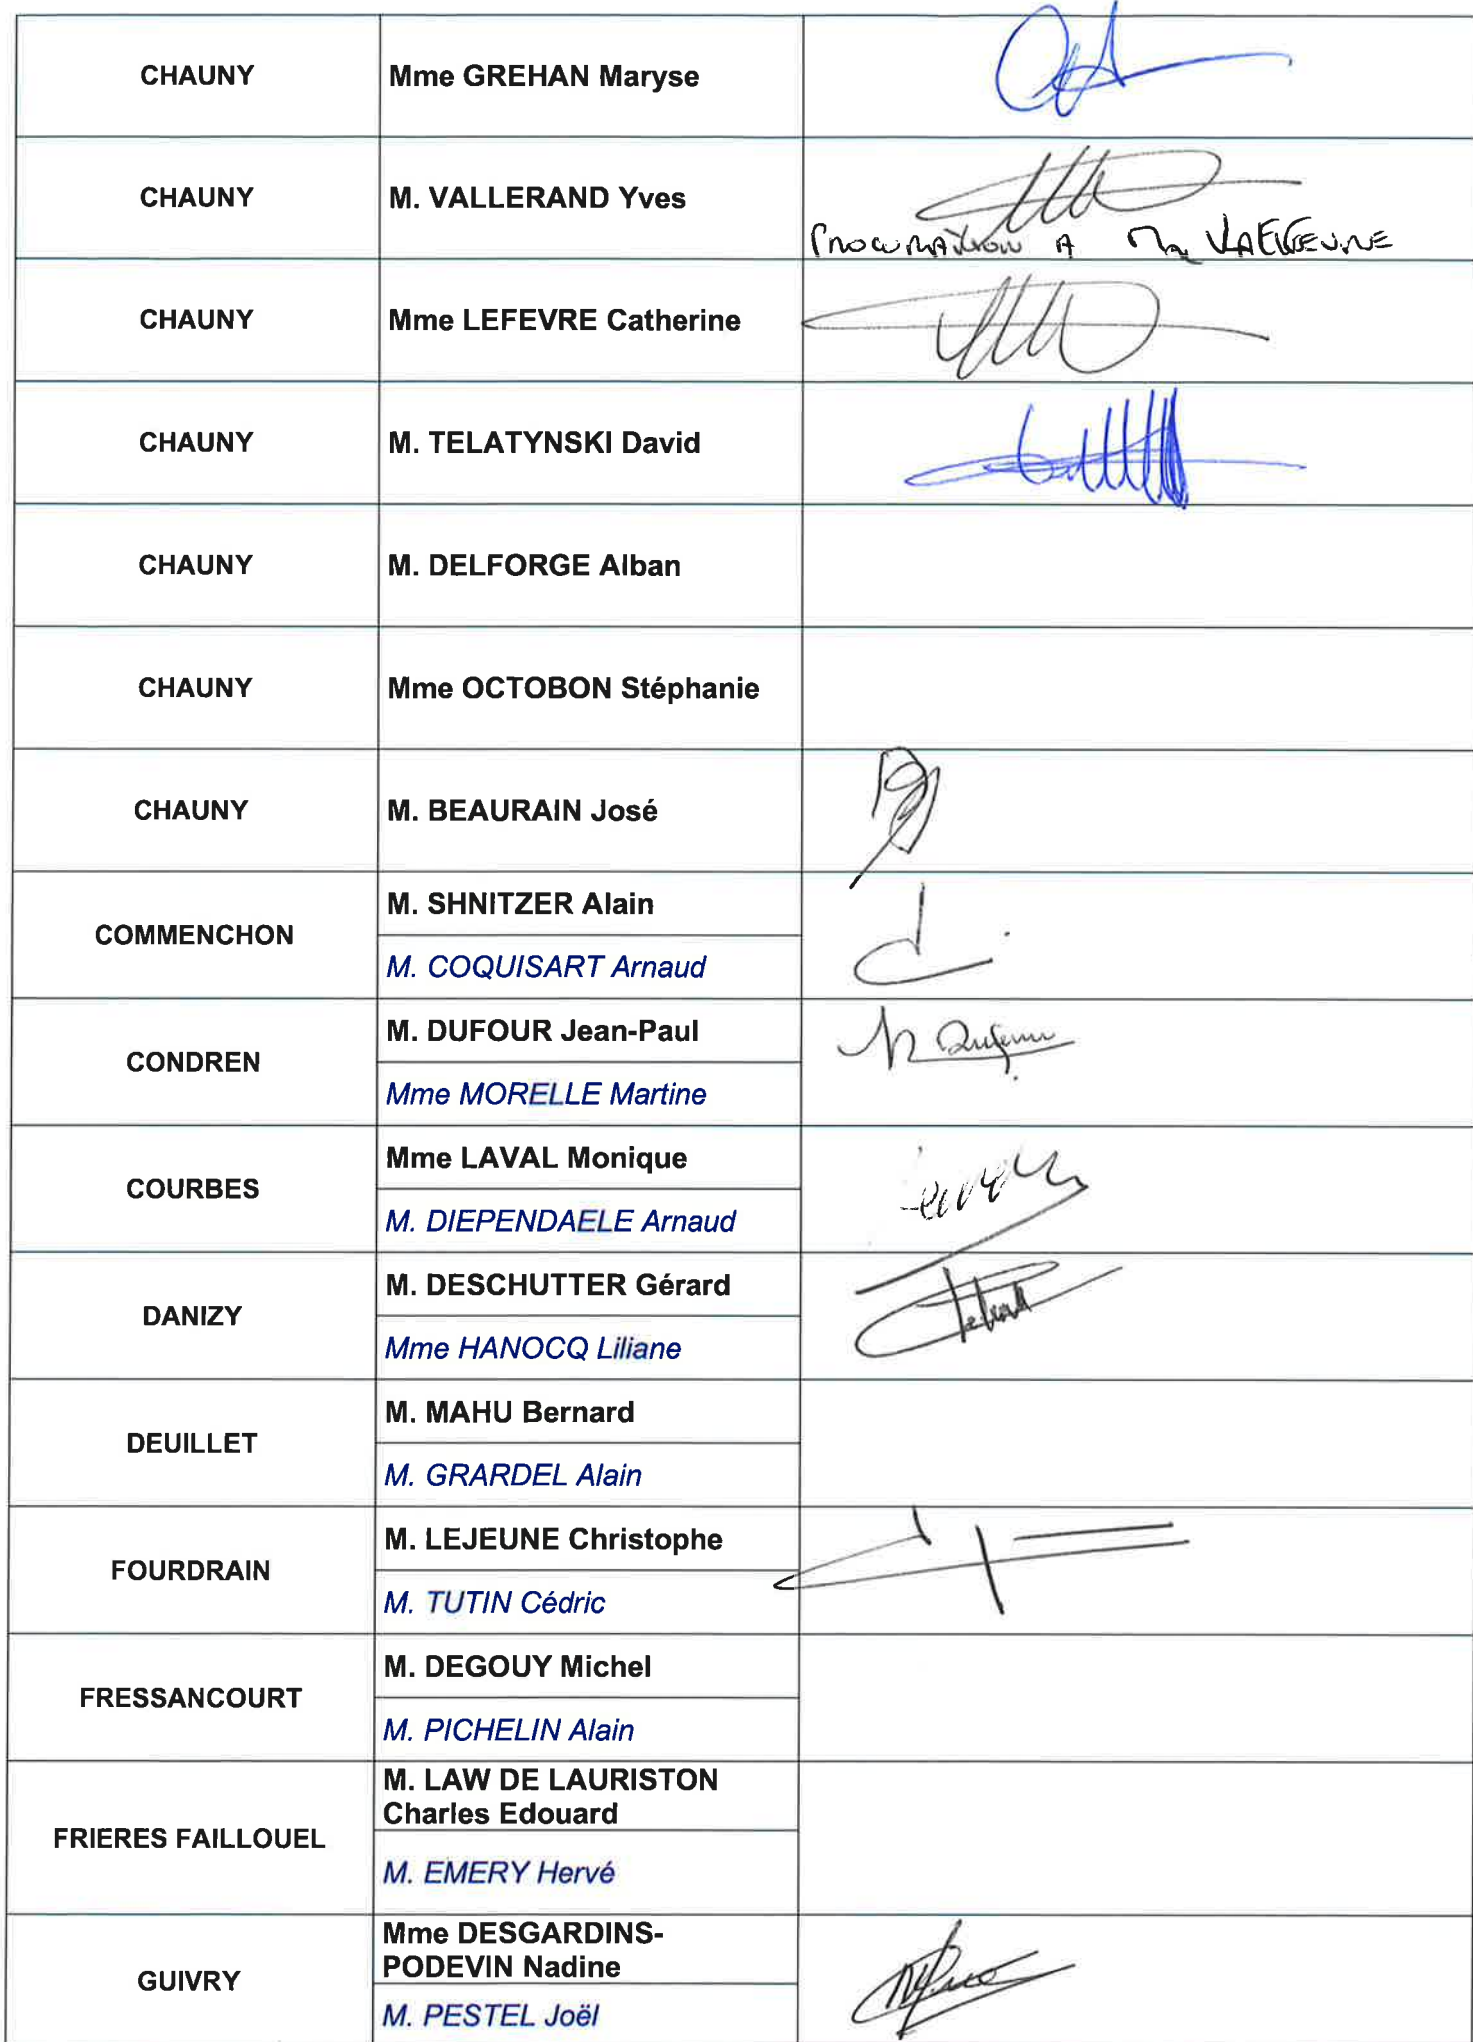 CHAUNY
Mme GREHAN Maryse
CHAUNY
M. VALLERAND Yves
Procuration A
CHAUNY
Mme LEFEVRE Catherine
CHAUNY
M. TELATYNSKI David
CHAUNY
M. DELFORGE Alban
CHAUNY
Mme OCTOBON Stéphanie
CHAUNY
M. BEAURAIN José
COMMENCHON
M. SHNITZER Alain
M. COQUISART Arnaud
CONDREN
M. DUFOUR Jean-Paul
Mme MORELLE Martine
COURBES
Mme LAVAL Monique
M. DIEPENDAELE Arnaud
DANIZY
M. DESCHUTTER Gérard
Mme HANOCQ Liliane
DEUILLET
M. MAHU Bernard
M. GRARDEL Alain
FOURDRAIN
M. LEJEUNE Christophe
M. TUTIN Cédric
FRESSANCOURT
M. DEGOUY Michel
M. PICHELIN Alain
FRIERES FAILLOUEL
M. LAW DE LAURISTON
Charles Edouard
M. EMERY Hervé
GUIVRY
Mme DESGARDINS-
PODEVIN Nadine
M. PESTEL Joël